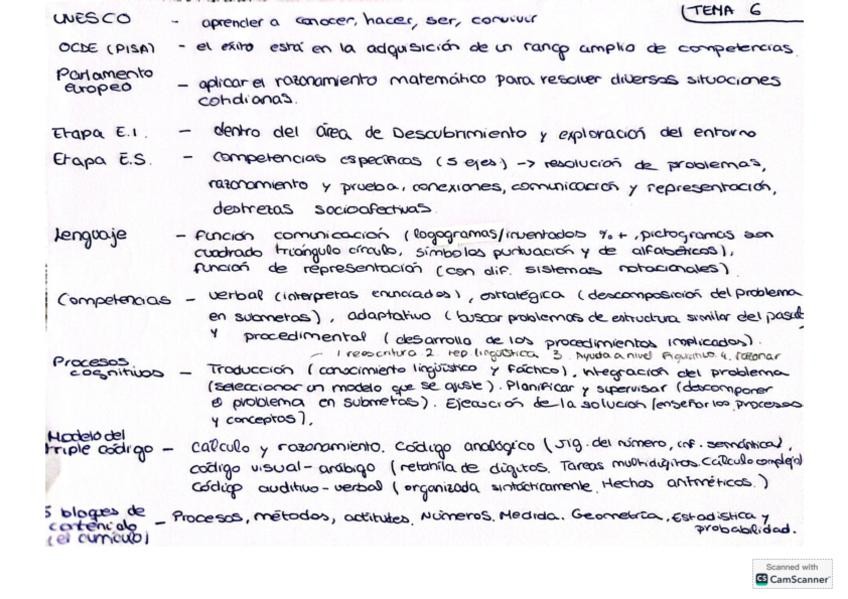 TEMA 6
UNESCO - aprender a conocer, hacer, ser, convivir
OCDE (PISA) - el exito está en la adquisición de un rango amplio de competencias.
Parlamento europeo - aplicar el razonamiento matemático para resolver diversas situaciones
cotidianas.
Etapa E.I. - dentro del área de Descubrimiento y exploración del entorno
Etapa E.S. - competencias específicas (5 ejes) -> resolución de problemas,
razonamiento y prueba, conexiones, comunicación y representación,
destrezas socioafectivas.
Lenguaje - función comunicación (logogramas/inventados % +, pictogramas son
cuadrado triángulo círculo, símbolos puntuación y de alfabéticos),
función de representación (con dif. sistemas notacionales).
Competencias - verbal (interpretas enunciados), estratégica (descomposición del problema
en submetas), adaptativo (buscar problemas de estructura similar del pasado
y procedimental (desarrollo de los procedimientos implicados).
1 reescritura 2. rep. lingüística 3. Ayuda a nivel figurativo 4. razonar
Procesos cognitivos - Traducción (conocimiento lingüístico y fáctico), integración del problema
(seleccionar un modelo que se ajuste). Planificar y supervisar (descomponer
el problema en submetas). Ejecución de la solución (enseñar los procesos
y conceptos),
Modelo del triple código - cálculo y razonamiento. Código analógico (sig. del número, inf. semántica),
código visual-arábigo (retahíla de dígitos. Tareas multidígitos. Cálculo complejo)
Código auditivo-verbal (organizada sintácticamente. Hechos aritméticos.)
5 bloques de contenido (el currículo) - Procesos, métodos, actitudes. Números. Medida. Geometría, Estadística y
probabilidad.
Scanned with
CS CamScanner